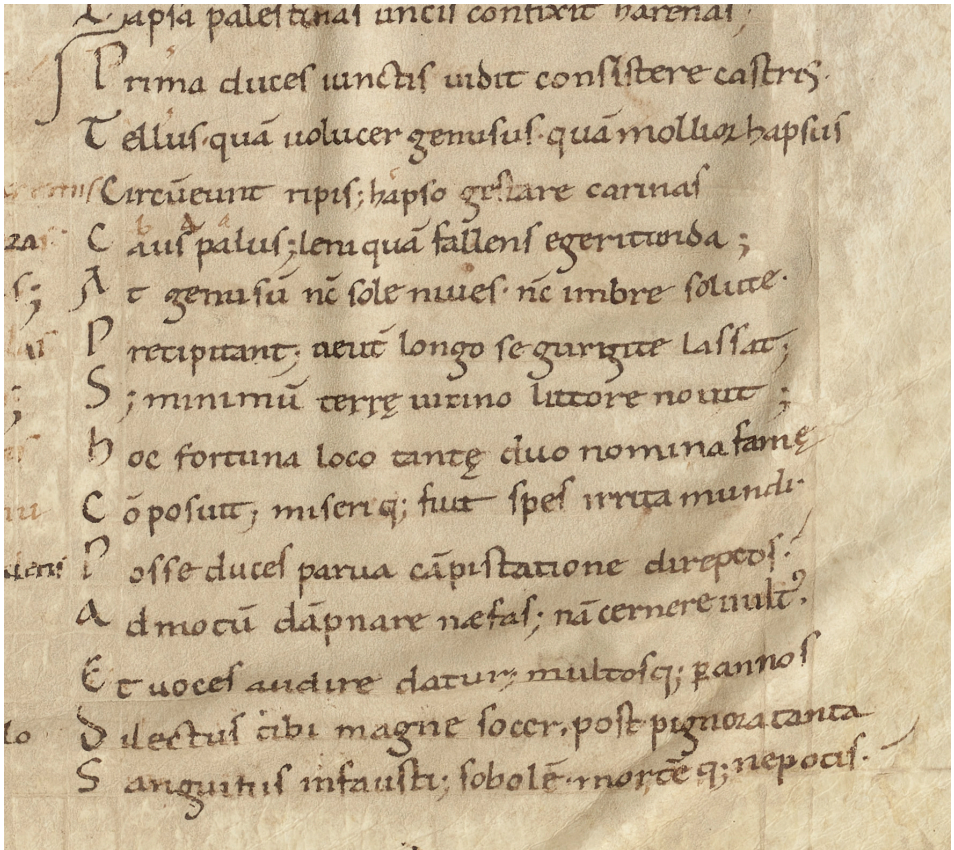 Lapsa palestinas uncis confixit harenas;
Prima duces iunctis uidit consistere castris.
Tellus. quā uolucer genusus. quā mollior hapsus
Circūeunt ripis; hapso gestare carinas
Caus palus; leni quā fallens egerit unda;
At genusū nc̄ sole niues. nc̄ imbre solute.
Precipitant; neut̄ longo se gurgite lassat;
S; minimū terrę uicino littore nouit;
hoc fortuna loco tantę duo nomina famę
Cōposuit; miseriq; fuit spes irrita mundi.
Posse duces parua cāpi statione direptos.
Admotū dāpnare nefas; nā cernere uult᾿.
Et uoces audire datur; multosq; p annos
Dilectus tibi magne socer. post pignora tanta
Sanguinis infausti; sobolē. mortēq; nepotis.